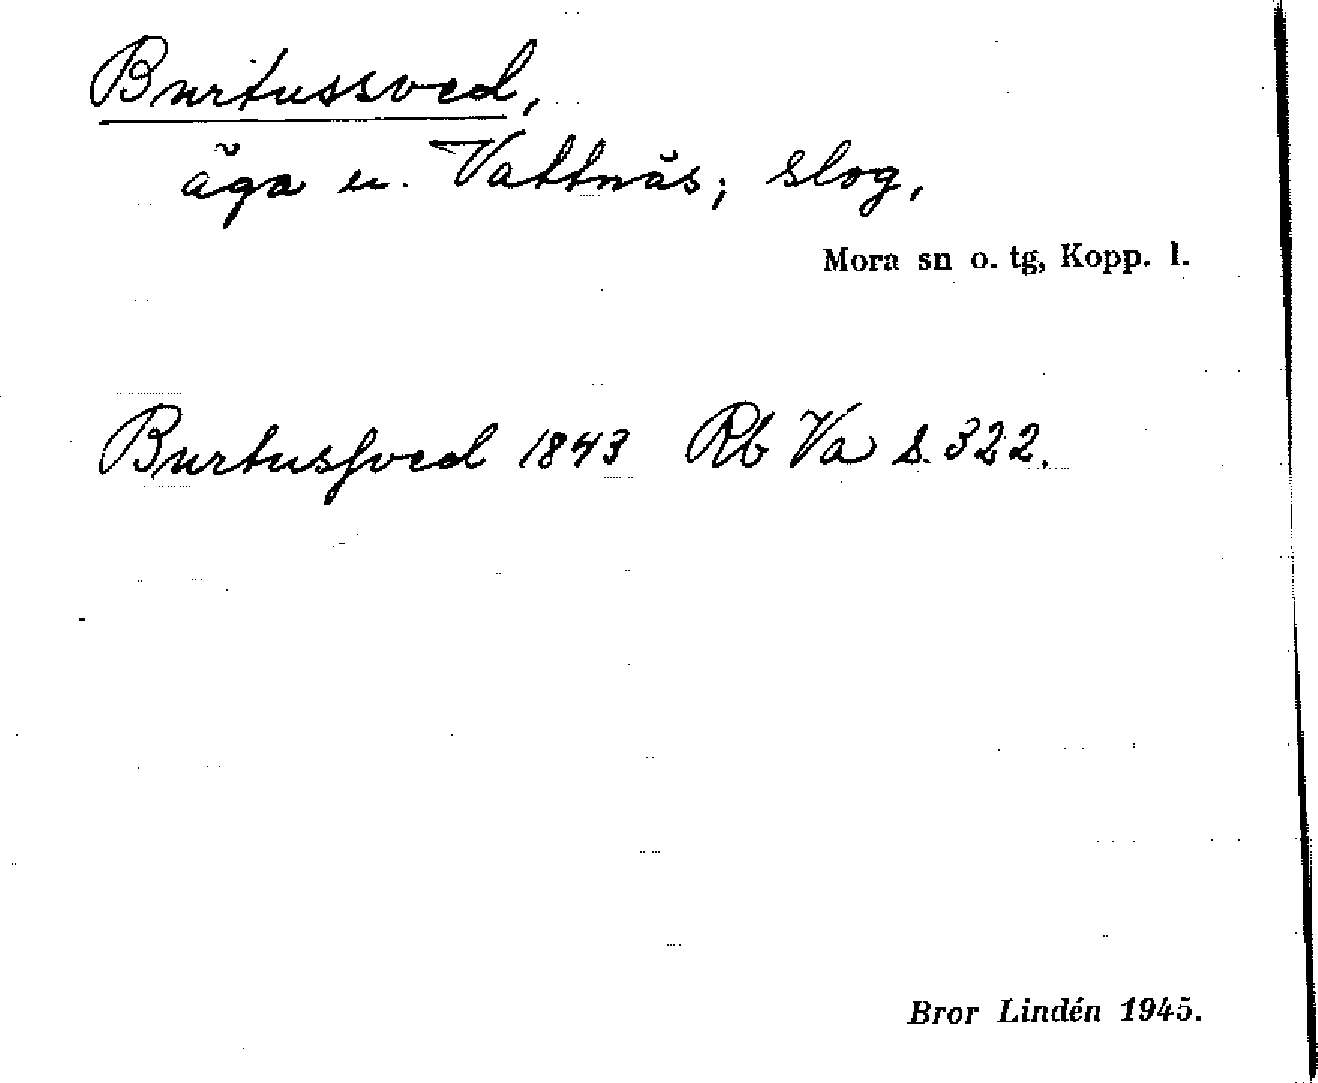 Burtussved,
äga u. Vattnäs; slog,
Mora sn o. tg, Kopp. l.
Burtussved 1843 Rb Va s. 322.
Bror Lindén 1945.